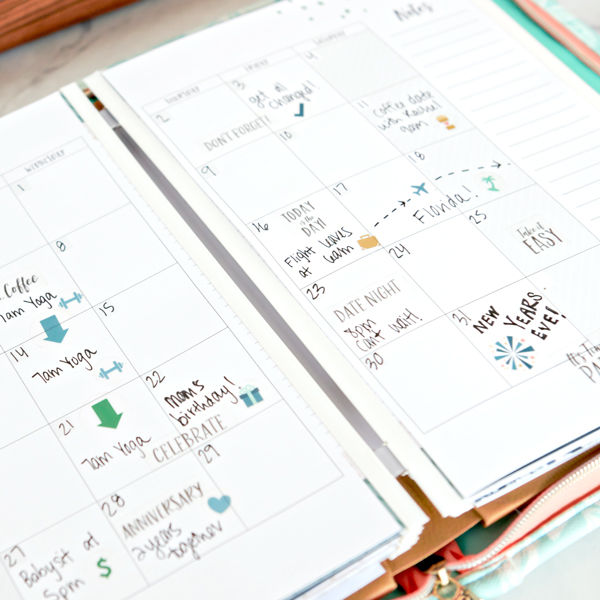 WEDNESDAY
1
8
Coffee
7am Yoga
14
7am Yoga
15
21
7am Yoga
22
mom's
birthday!
CELEBRATE
27
Babysit at
5pm $
28
ANNIVERSARY
2 years
together
29
Notes
THURSDAY
FRIDAY
SATURDAY
2
3
get oil
changed!
DON'T FORGET!
4
9
10
11
Coffee date
with Rachel
9am
16
TODAY
is the
DAY!
Flight leaves
at 6am
17
18
Florida!
23
DATE NIGHT
8pm
can't wait!
24
25
take it
EASY
30
31
NEW
YEARS
EVE!